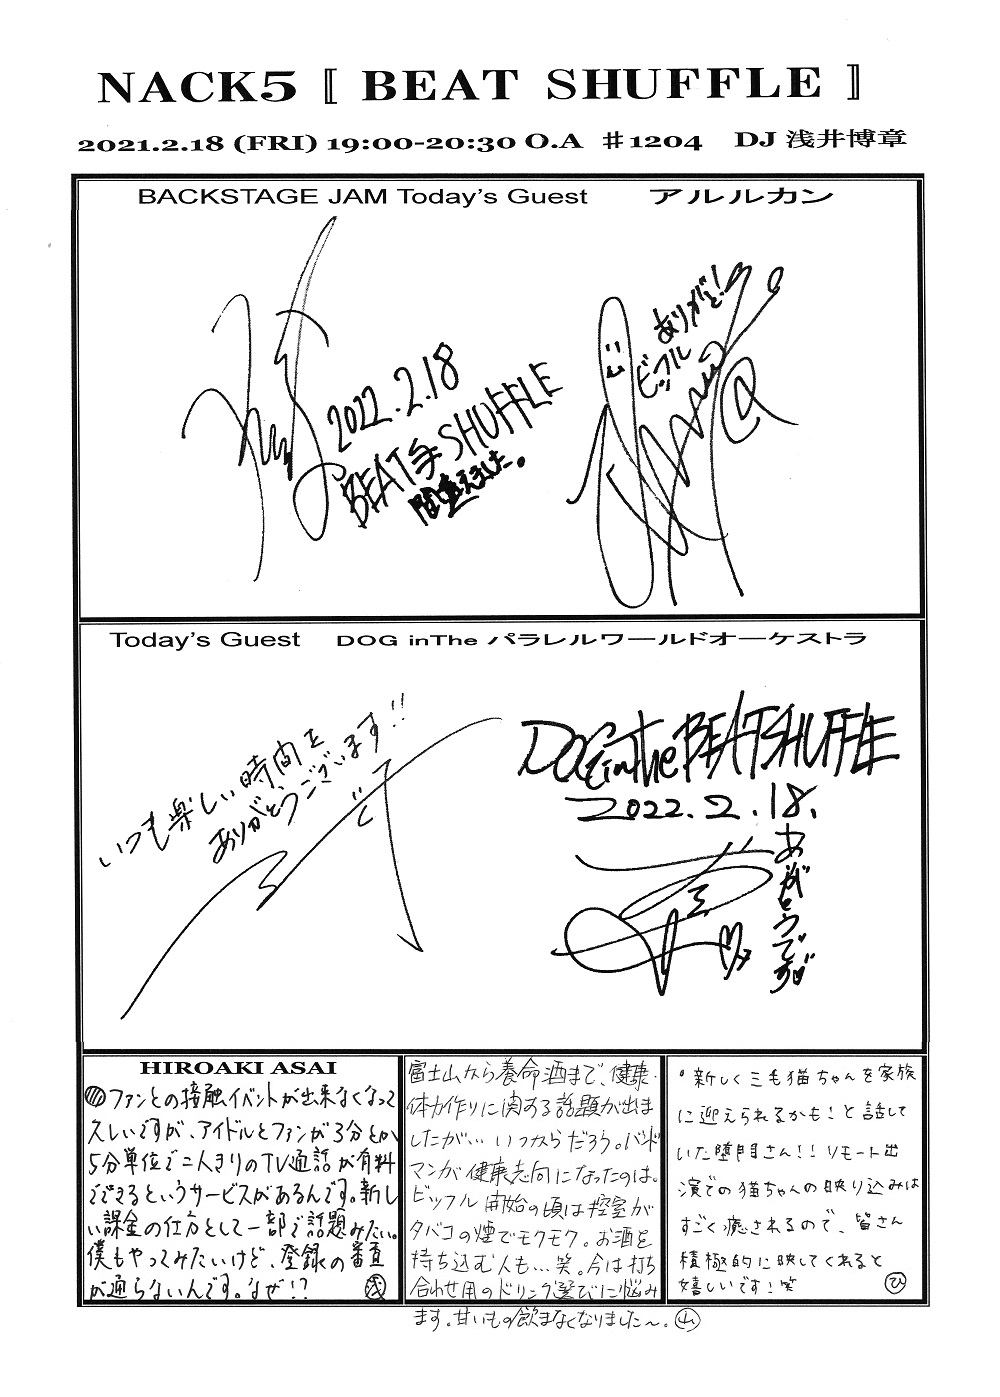 NACK5 〚 BEAT SHUFFLE 〛
2021.2.18 (FRI) 19:00-20:30 O.A ♯1204 DJ 浅井博章
BACKSTAGE JAM Today's Guest アルルカン
2022.2.18
BEAT SHUFFLE
間違えました。
ありがと!
ビッフル
Today's Guest DOG inThe パラレルワールドオーケストラ
いつも楽しい時間を
ありがとうございます!!
DOG in The BEAT SHUFFLE
2022.2.18.
ありがとうです
HIROAKI ASAI
ファンとの接触イベントが出来なくなって
久しいですが、アイドルとファンが3分とか
5分単位で二人きりのTV通話が有料
でできるというサービスがあるんです。新し
い課金の仕方として一部で話題みたい。
僕もやってみたいけど、登録の審査
が通らないんです。なぜ!? 浅
富士山から養命酒まで、健康・
体力作りに関する話題が出ま
したが…いつからだろう。バンド
マンが健康志向になったのは。
ビッフル開始の頃は控室が
タバコの煙でモクモク。お酒を
持ち込む人も…笑。今は打ち
合わせ用のドリンク選びに悩み
ます。甘いもの飲まなくなりました〜。山
・新しく三毛猫ちゃんを家族
に迎えられるかも!と話して
いた堕門さん!!リモート出
演での猫ちゃんの映り込みは
すごく癒されるので、皆さん
積極的に映してくれると
嬉しいです!笑 ひ